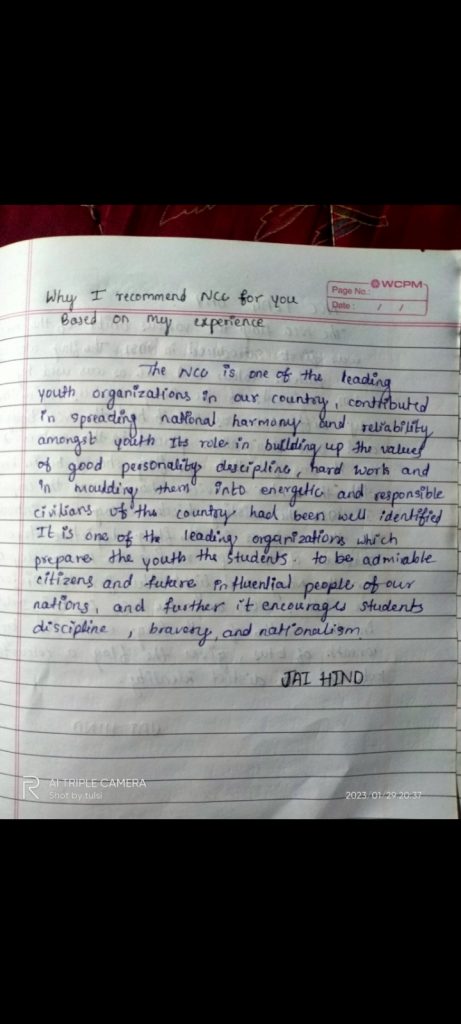 WCPM
Page No.:
Date : / /
Why I recommend NCC for you
Based on my experience
The NCC is one of the leading
youth organizations in our country, contributed
in spreading national harmony and reliability
amongst youth Its role in building up the values
of good personality descipline, hard work and
in moulding them into energetic and responsible
civilians of the country had been well identified
It is one of the leading organizations which
prepare the youth the students. to be admirable
citizens and future influential people of our
nations, and further it encourages students
discipline , bravery, and nationalism.
JAI HIND
AI TRIPLE CAMERA
Shot by tulsi
2023/01/29 20:37